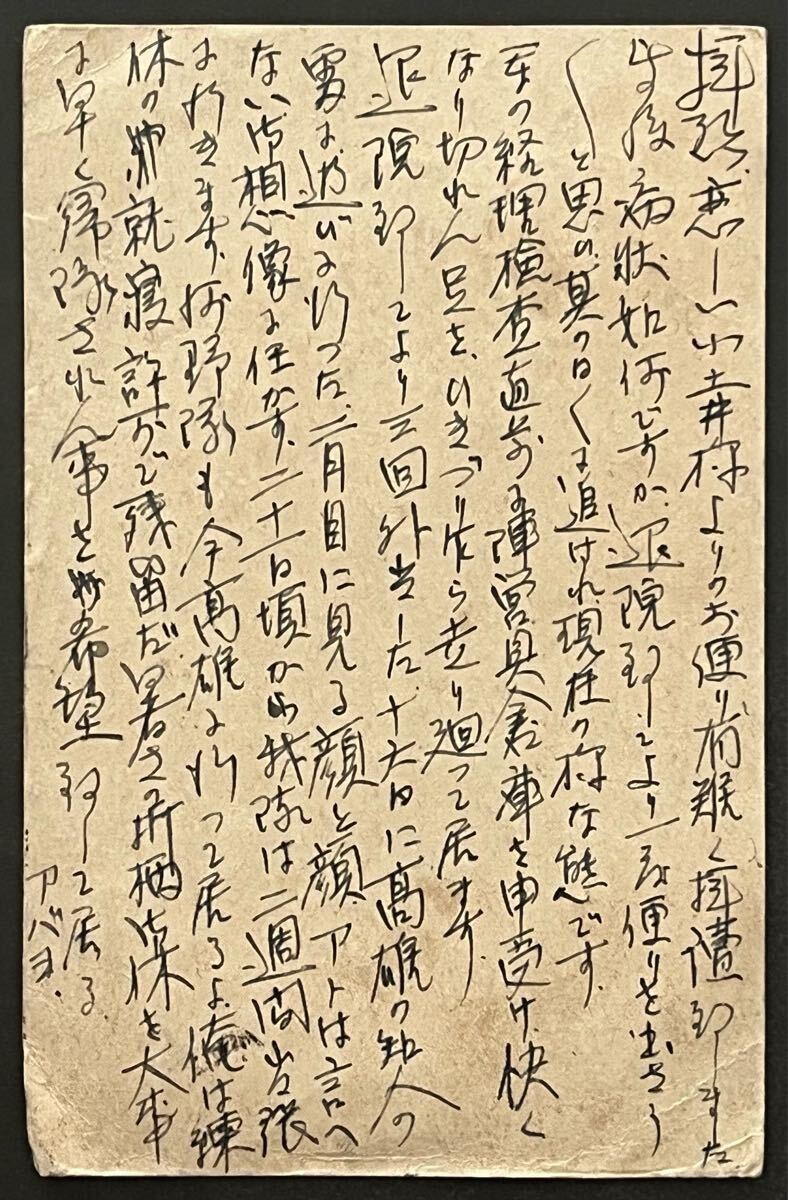 拝啓、恋しい小井様よりのお便り有難く拝読致しました
其後、病状如何ですか、退院致してより一度便りを出さう
〱と思ひ其の日〱に追はれ現在の様な態です、
一年の経理検査直前に陣営具倉庫を申受け、快く
なり切れん足を、ひきづり乍ら走り廻って居ます、
退院致してより三回外出した、十六日に高雄の知人の
家に遊びに行った、二月目に見る顔と顔、アトは言へ
ない、御想像に任かす、二十一日頃から我隊は二週間出張
に行きます、河野隊も今高雄に行って居るよ、俺は練
休の為就寝許可で残留だ、暑さの折柄御体を大事
に早く帰隊されん事を希望致して居る
アバヨ、